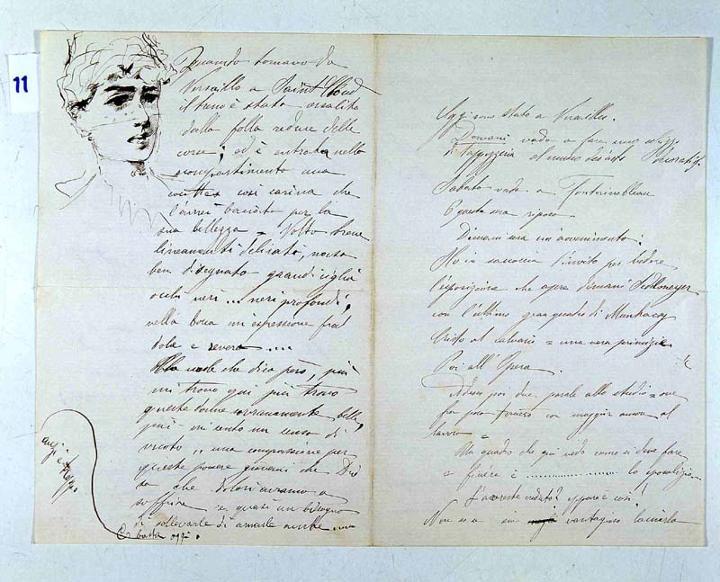 11
Quando tornavo da
Versaillo a Saint Cloud
il treno è stato assalito
dalla folla reduce delle
corse; ed è entrata nello
scompartimento una
così carina che
l'avrei baciata per la
sua bellezza = Volto breve
lineamenti delicati, naso
ben disegnato grandi ciglia
occhi neri... neri profondi,
nella bocca un espressione fra
e severa....
che dico però, più
mi trovo qui più trovo
queste donne sovranamente belle,
più mi sento un senso di
vuoto.. una compassione per
queste povere giovani che Dio
sa che dolori avranno a
soffrire e quasi un bisogno
di sollevarle di amarle
E basta oggi.
Oggi sono stato a Versailles.
Domani vado a fare uno
di Tappezzeria al museo
Sabato vado a Fontainebleau
E questa sera riposo
Domani sera un avvenimento:
Ho in saccoccia l'invito per vedere
l'esposizione che apre domani Sedlmeyer
con l'ultimo gran quadro di Munkacsy
Cristo al calvario = una vera primizia.
Poi all'Opera.
Adesso poi due parole allo studio = onde
far poi con maggior amore al
lavoro =
Un quadro che qui vedo come si deve fare
e finire è .............. la
L'avreste creduto? eppure è così!
Non si a vantaggio